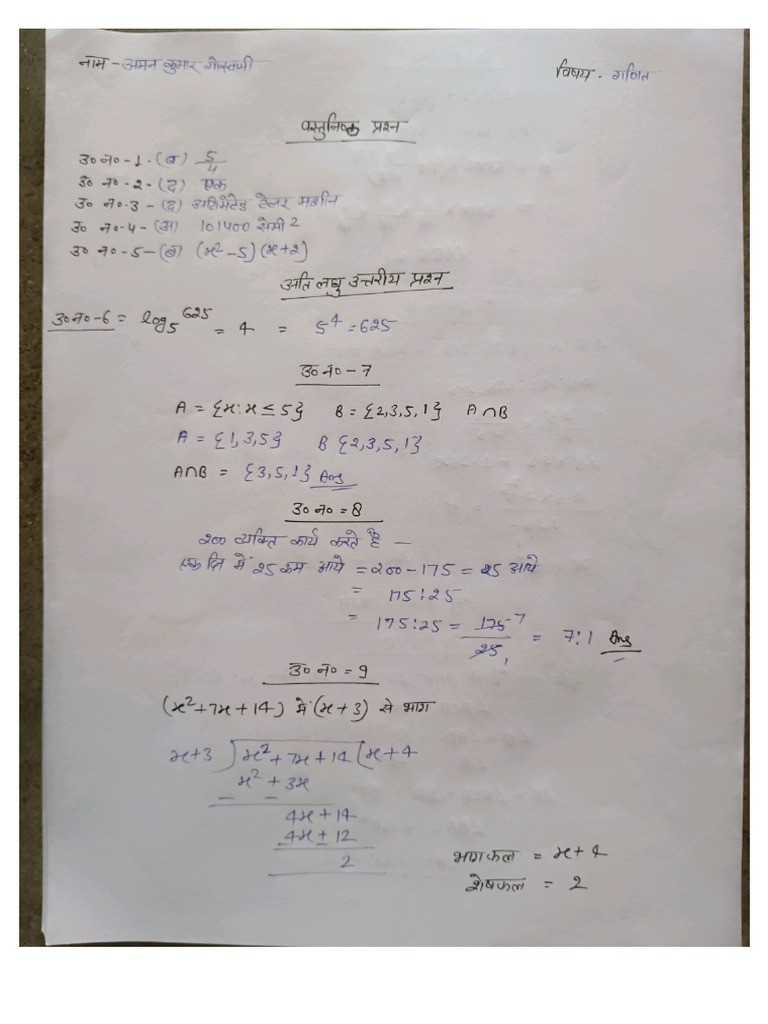 नाम - अमन कुमार गोस्वामी विषय - गणित
वस्तुनिष्ठ प्रश्न
उ० न० - 1 - (ब) 5/4
उ० न० - 2 - (द) एक
उ० न० - 3 - (द) ऑटोमेटेड टेलर मशीन
उ० न० - 4 - (अ) 101400 सेमी²
उ० न० - 5 - (ब) (x² - 5) (x + 2)
अति लघु उत्तरीय प्रश्न
उ० न० - 6 = log₅ 625 = 4 = 5⁴ = 625
उ० न० - 7
A = {x : x ≤ 5} B = {2,3,5,1} A∩B
A = {1,3,5} B {2,3,5,1}
A∩B = {3,5,1} Ans
उ० न० = 8
200 व्यक्ति कार्य करते है -
एक दिन में 25 कम आये = 200 - 175 = 25 आये
= 175 : 25
= 175 : 25 = 175 7 / 25 1 = 7 : 1 Ans
उ० न० = 9
(x² + 7x + 14) में (x + 3) से भाग
x + 3 ) x² + 7x + 14 ( x + 4
x² + 3x
- -
4x + 14
4x + 12
- -
2
भागफल = x + 4
शेषफल = 2